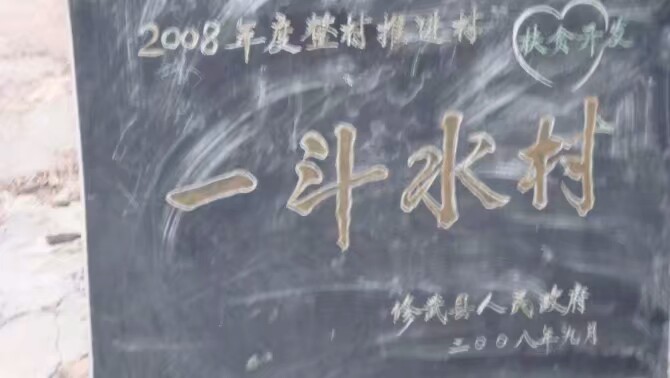 2008年度整村推进村
扶贫开发
一斗水村
修武县人民政府
二〇〇八年九月